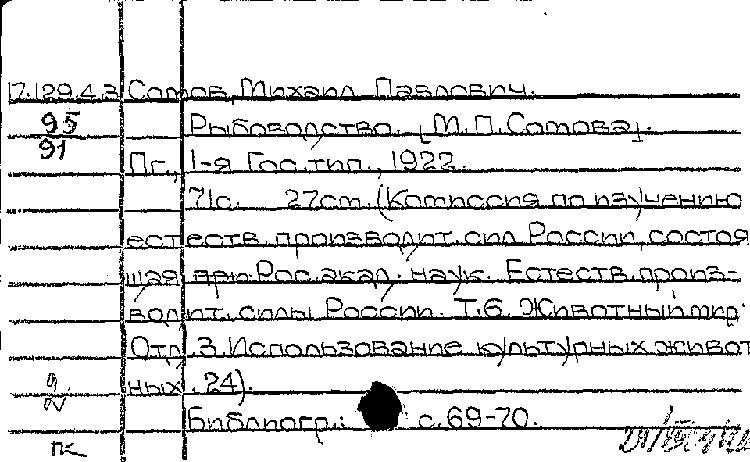 17.129.4.3 Сомов, Михаил Павлович.
95 Рыбоводство. [М.П.Сомова].
91 Пг., 1-я Гос.тип., 1922.
71с. 27см. (Комиссия по изучению
естеств. производит. сил России, состоя
щая при Рос.акад. наук. Естеств. произ-
водит. силы России. Т.6. Животный мир.
Отд.3.Использование культурных живот
ных. 24).
Библиогр.: с.69-70.